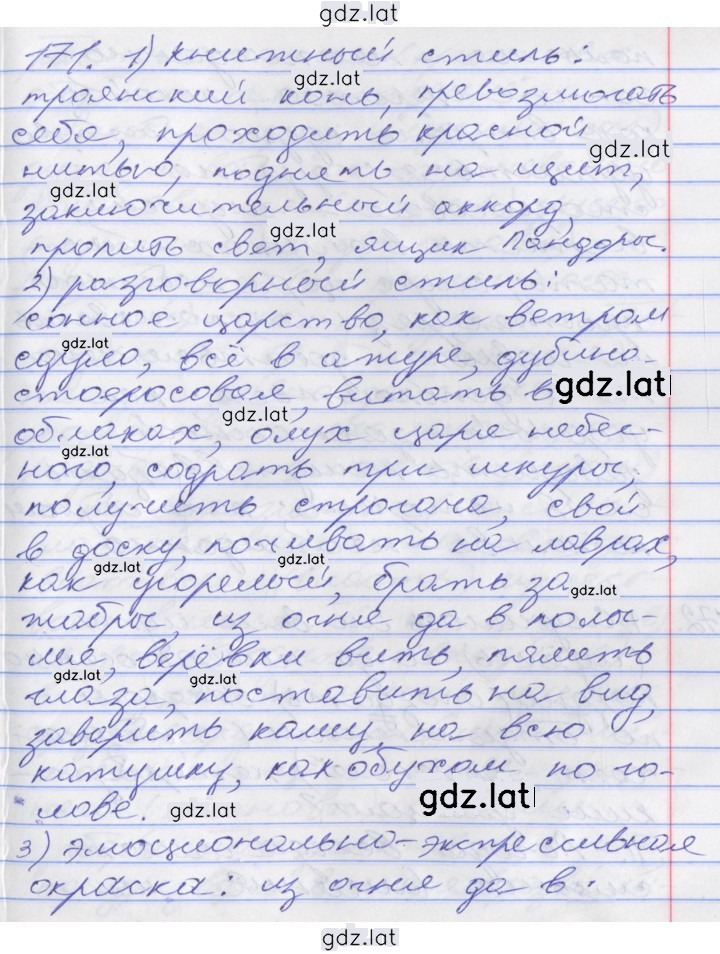 gdz.lat
171. 1) книжный стиль:
gdz.lat
троянский конь, превозмогать
себя, проходить красной
gdz.lat
нитью, поднять на щит,
gdz.lat
заключительный аккорд,
пролить свет, ящик Пандоры.
2) разговорный стиль:
сонное царство, как ветром
gdz.lat
сдуло, всё в ажуре, дубина
стоеросовая, витать в
gdz.lat
gdz.lat
облаках, олух царя небес-
ного, содрать три шкуры,
получить строгача, свой
в доску, почивать на лаврах,
gdz.lat
gdz.lat
как угорелый, брать за
gdz.lat
жабры, из огня да в полы-
мя, верёвки вить, пялить
gdz.lat
gdz.lat
глаза, поставить на вид,
заварить кашу, на всю
катушку, как обухом по го-
лове.
gdz.lat
gdz.lat
3) эмоционально-экспрессивная
окраска: из огня да в
gdz.lat